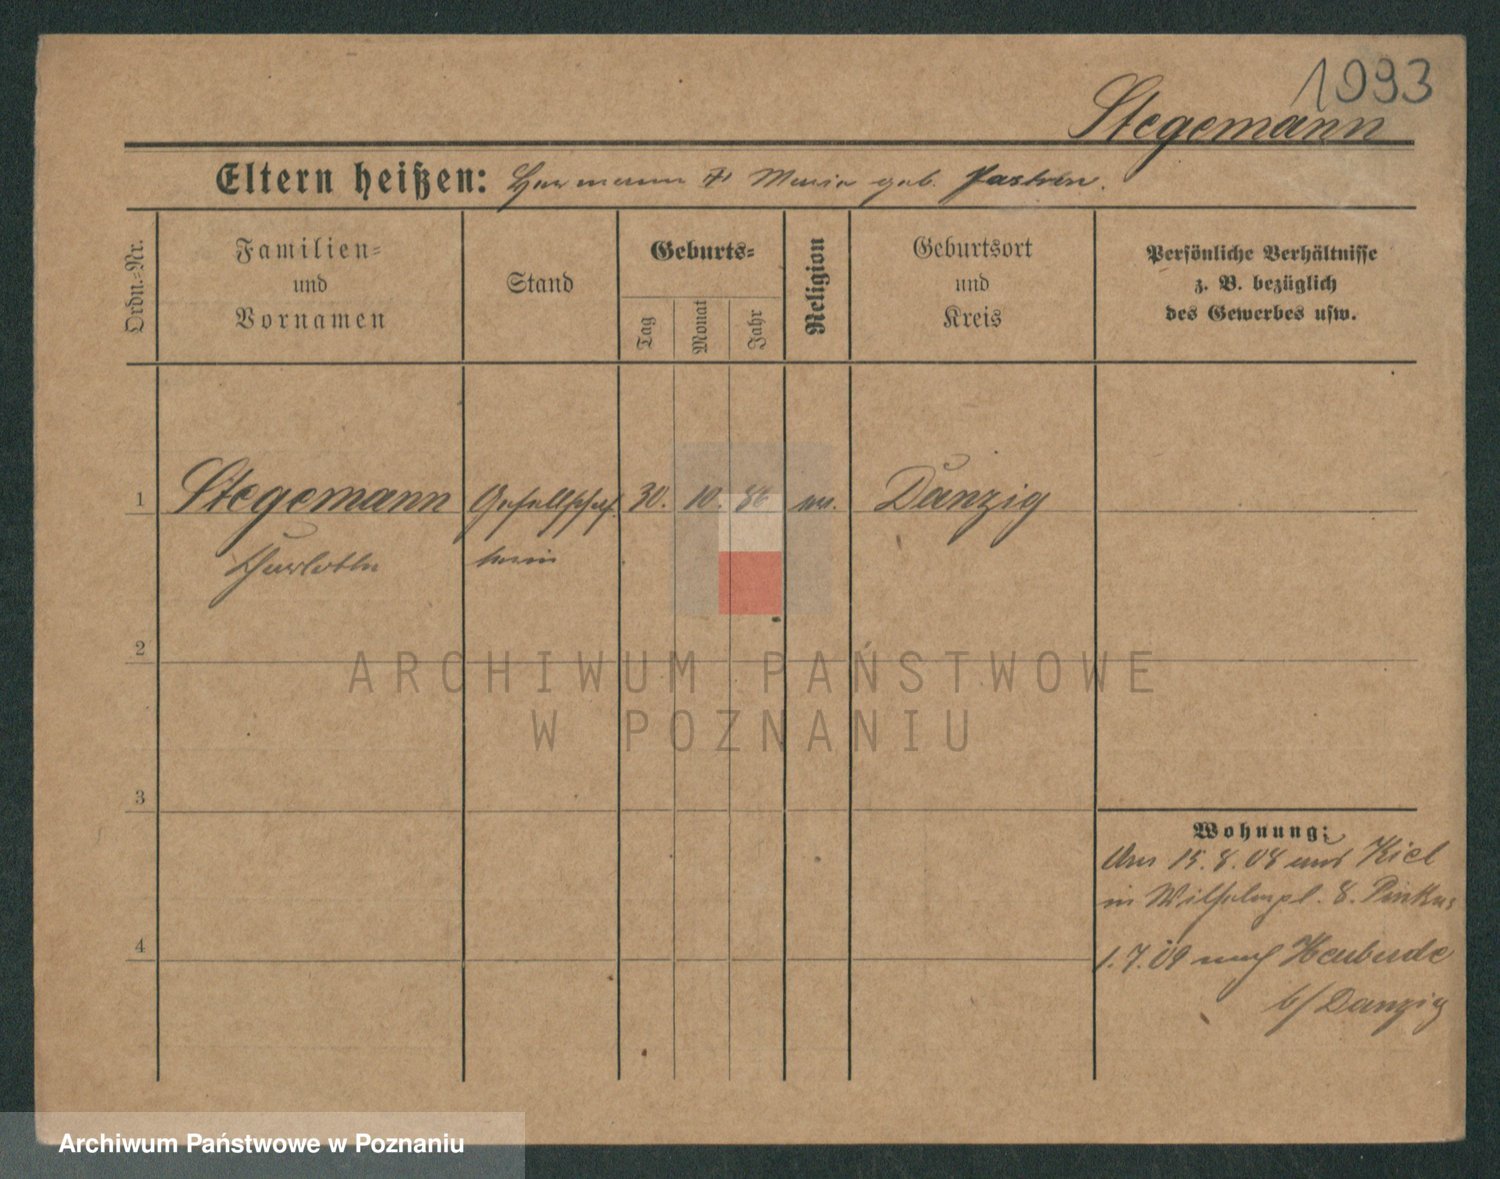 1093
Stegemann
Eltern heißen: Hermann & Maria geb.
Ordn.=Nr.
Familien=
und
Vornamen
Stand
Geburts=
Tag
Monat
Jahr
Religion
Geburtsort
und
Kreis
Persönliche Verhältnisse
z. B. bezüglich
des Gewerbes usw.
1
Stegemann
Gesellschaf
30. 10. 86
Danzig
Charlotte
terin
2
ARCHIWUM PAŃSTWOWE
W POZNANIU
3
Wohnung:
Am 15.8.08 aus Kiel
in Wilhelmpl. 8. Pinkus
4
1.7.09 nach Heubude
b/ Danzig
Archiwum Państwowe w Poznaniu